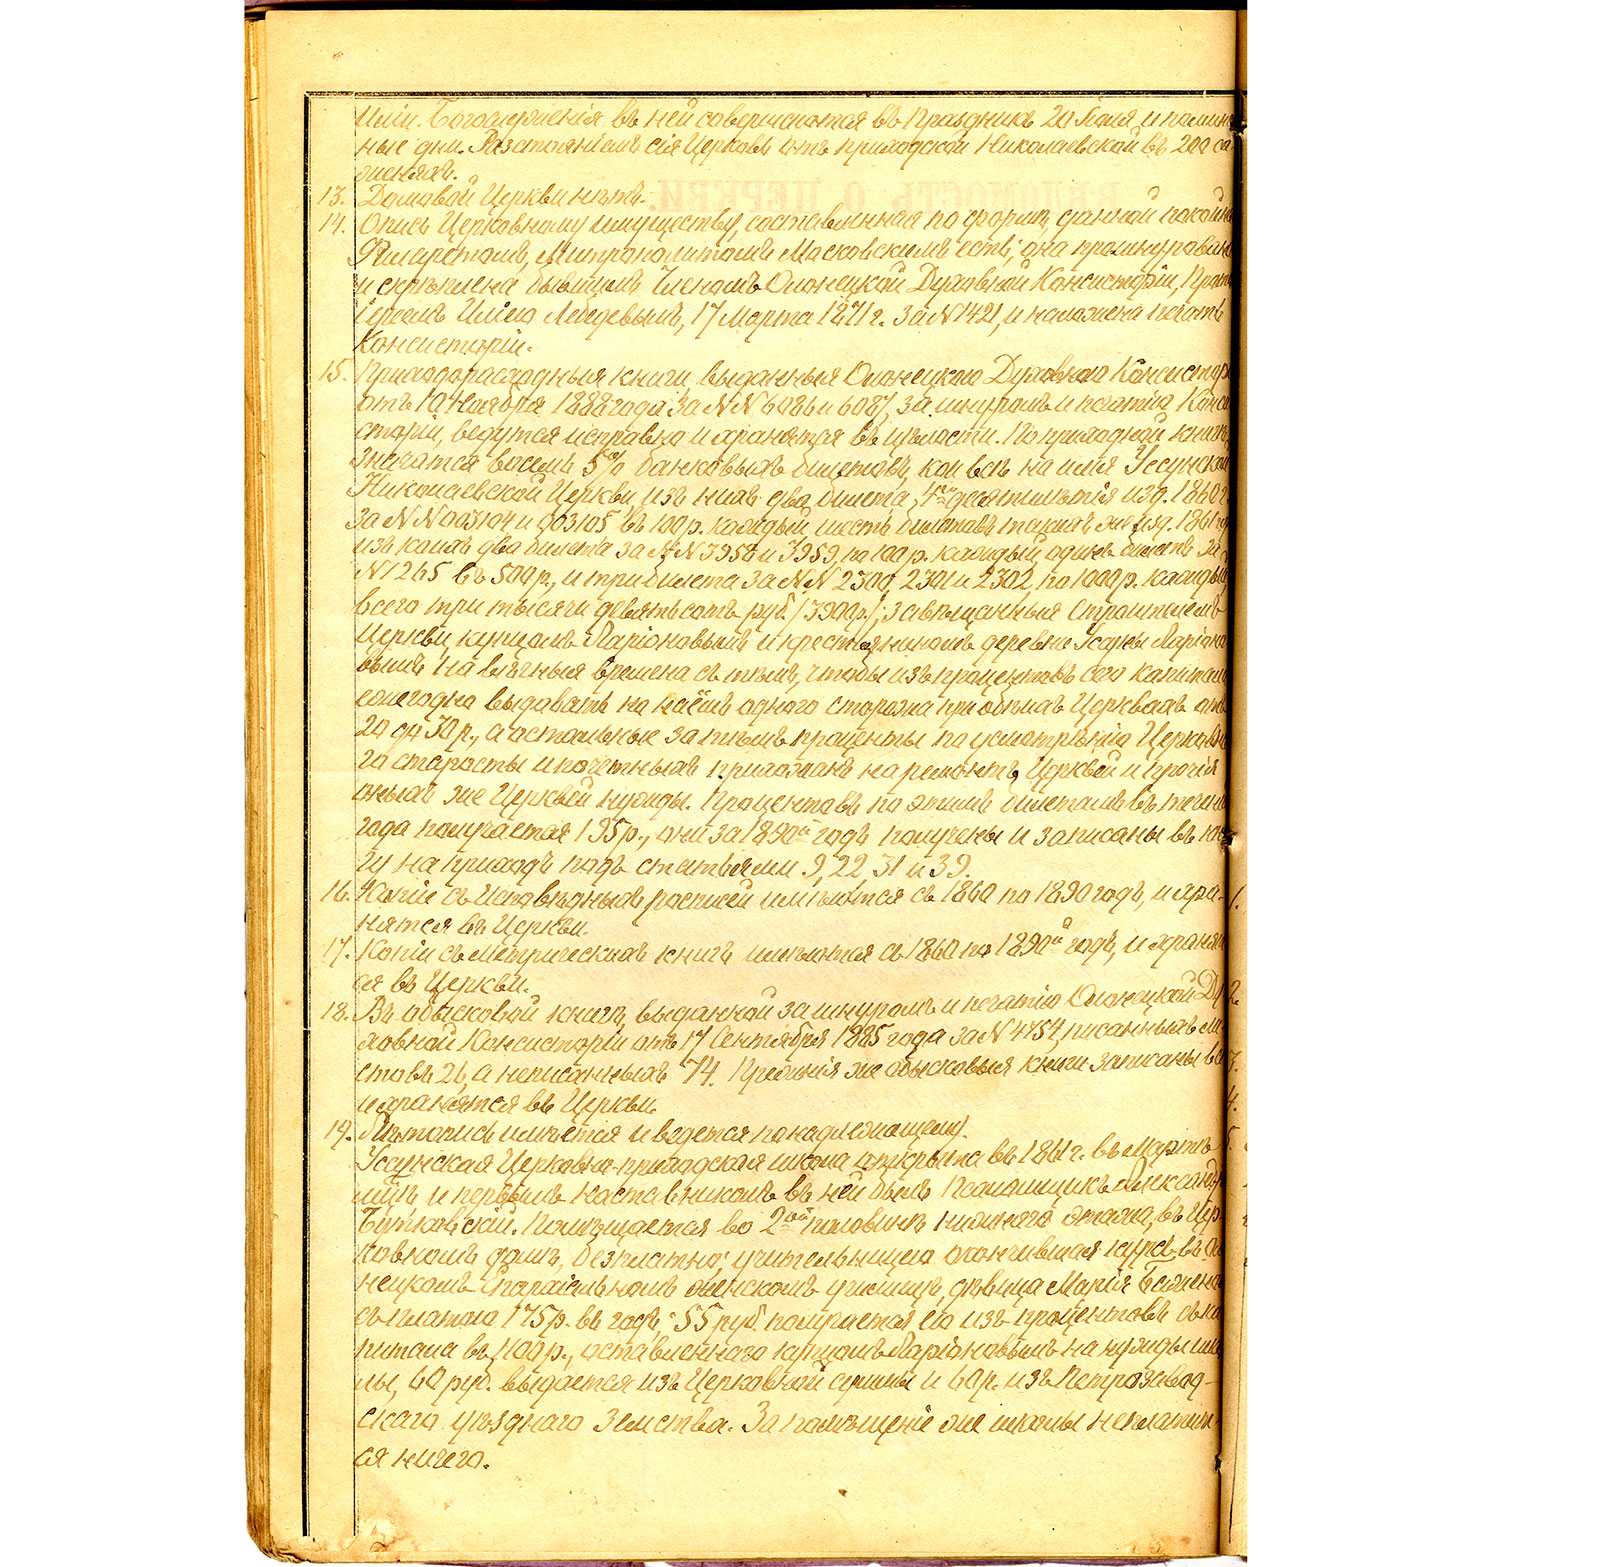 Иліи. Богослуженія въ ней совершаются въ Праздникъ 20 Іюля и помин
ные дни. Разстояніемъ сія Церковь отъ приходской Николаевской въ 200 са-
женяхъ.
13. Домовой Церкви нѣтъ.
14. Опись Церковному имуществу, составленная по формѣ, данной покойн
Филаретомъ, Митрополитомъ Московскимъ есть; она прошнурована
и скрѣплена бывшимъ Членомъ Олонецкой Духовной Консисторіи, Прот
іереемъ Иліею Лебедевымъ, 17 Марта 1871 г. за N 1421, и наложена печать
Консисторіи.
15. Приходорасходныя книги, выданныя Олонецкою Духовною Консистор
отъ 10 Ноября 1888 года за NN 6086 и 6087, за шнуромъ и печатію Конси
сторіи, ведутся исправно и хранятся въ цѣлости. По приходной книгѣ
значатся восемь 5% банковыхъ билетовъ, кои всѣ на имя Усунской
Николаевской Церкви, изъ нихъ два билета, десятилѣтія изд. 1860 г.
за NN 003104 и 003105 въ 100 р. каждый шесть билетовъ такихъ же изд. 1861 год
изъ коихъ два билета за NN 3958 и 3959, по 100 р. каждый, одинъ билетъ за
N 1265 въ 500 р., и три билета за NN 2300, 2301 и 2302, по 1000 р. каждый
всего три тысячи девятьсотъ руб. (3900 р.); завѣщанныя строителемъ
Церкви купцомъ Ларіоновымъ и крестьяниномъ деревни Усуны Ларіоно
вымъ на вѣчныя времена съ тѣмъ, чтобы изъ процентовъ сего капитала
ежегодно выдавать на наёмъ одного сторожа при обѣихъ Церквахъ отъ
20 до 30 р., а остальные за тѣмъ проценты по усмотрѣнію Церковна
го старосты и почетныхъ прихожанъ на ремонтъ Церквей и прочія
оныхъ же Церквей нужды. Процентовъ по этимъ билетамъ въ течені
года получается 195 р., они за 1890й годъ получены и записаны въ кни
гу на приходъ подъ статьями 9, 22, 31 и 39.
16. Копіи съ Исповѣдныхъ росписей имѣются съ 1860 по 1890 годъ, и хра-
нятся въ Церкви.
17. Копіи съ Метрическихъ книгъ имѣются съ 1860 по 1890й годъ, и хранят
ся въ Церкви.
18. Въ обыскной книгѣ, выданной за шнуромъ и печатію Олонецкой Ду
ховной Консисторіи отъ 17 Сентября 1885 года за N 4454, писанныхъ ли
стовъ 26, а неписанныхъ 74. Прежнія же обыскныя книги записаны всѣ
и хранятся въ Церкви.
19. Лѣтопись имѣется и ведется по надлежащему.
Усунская Церковно-приходская школа открыта въ 1861 г. въ Мартѣ
мѣс. и первымъ наставникомъ въ ней былъ Псаломщикъ Александр
Бутковскій. Помѣщается во 2ой половинѣ нижняго этажа, въ Цер
ковномъ домѣ, безплатно; учительницею окончившая курсъ въ Оло
нецкомъ Епархіальномъ женскомъ училищѣ, дѣвица Марія
съ платою 175 р. въ годъ, 55 руб. получается ею изъ процентовъ съ ка
питала въ 1100 р., оставленнаго купцомъ Ларіоновымъ на нужды шко
лы, 60 руб. выдается изъ Церковной суммы и 60 р. изъ Петрозавод-
скаго уѣзднаго Земства. За помѣщеніе же школы не платит-
ся ничего.